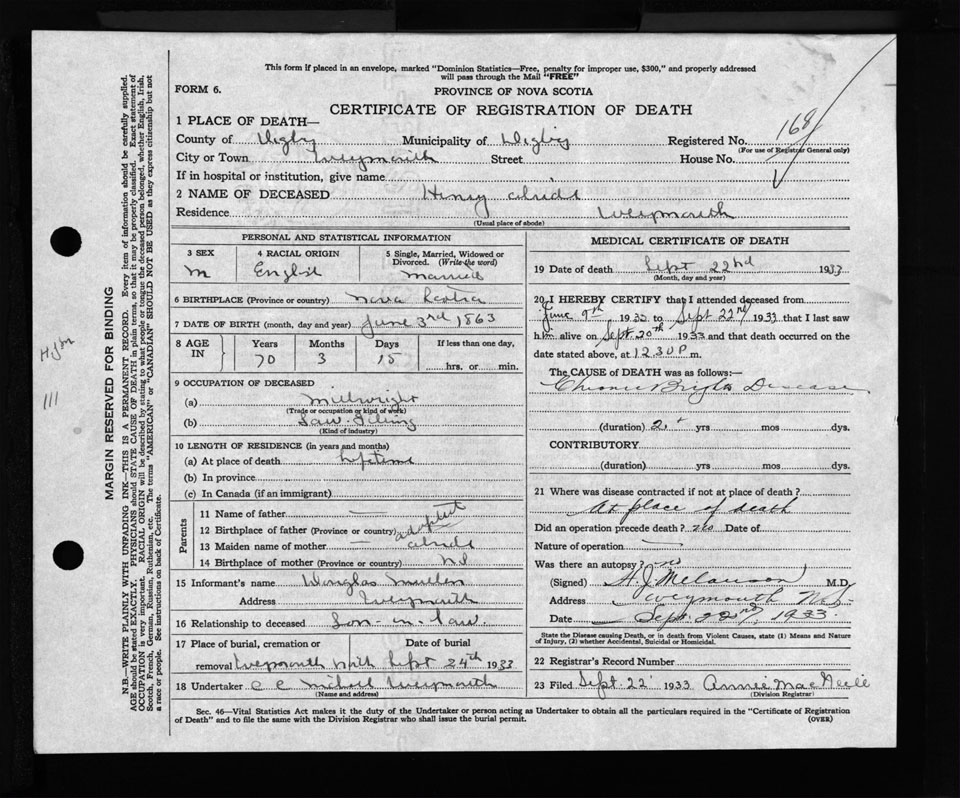 This form if placed in an envelope, marked "Dominion Statistics—Free, penalty for improper use, $300," and properly addressed
will pass through the Mail "FREE"
FORM 6.
PROVINCE OF NOVA SCOTIA
CERTIFICATE OF REGISTRATION OF DEATH
1 PLACE OF DEATH—
County of Digby Municipality of Digby Registered No. 168
(For use of Registrar General only)
City or Town Weymouth Street House No.
If in hospital or institution, give name
2 NAME OF DECEASED Henry
Residence Weymouth
(Usual place of abode)
PERSONAL AND STATISTICAL INFORMATION
3 SEX 4 RACIAL ORIGIN 5 Single, Married, Widowed or Divorced. (Write the word)
M English Married
6 BIRTHPLACE (Province or country) Nova Scotia
7 DATE OF BIRTH (month, day and year) June 3rd 1863
8 AGE IN Years Months Days If less than one day,
70 3 15 hrs. or min.
9 OCCUPATION OF DECEASED
(a) Millwright
(Trade or occupation or kind of work)
(b) Saw Filing
(Kind of industry)
10 LENGTH OF RESIDENCE (in years and months)
(a) At place of death lifetime
(b) In province
(c) In Canada (if an immigrant)
Parents
11 Name of father —
12 Birthplace of father (Province or country) adopted
13 Maiden name of mother —
14 Birthplace of mother (Province or country)
15 Informant's name Douglas Mullen
Address Weymouth
16 Relationship to deceased Son-in-law
17 Place of burial, cremation or Date of burial
removal Weymouth North Sept 24th 1933
18 Undertaker C C Weymouth
(Name and address)
MEDICAL CERTIFICATE OF DEATH
19 Date of death Sept 22nd 1933
(Month, day and year)
20 I HEREBY CERTIFY that I attended deceased from
June 9th 1932 to Sept 22nd 1933 that I last saw
him alive on Sept 20th 1933 and that death occurred on the
date stated above, at 12.30 P.m.
The CAUSE of DEATH was as follows:—
Chronic Brights Disease
(duration) 2+ yrs mos dys.
CONTRIBUTORY
(duration) yrs mos dys.
21 Where was disease contracted if not at place of death?
At place of death
Did an operation precede death? no Date of
Nature of operation —
Was there an autopsy? no
(Signed) A. J. Melanson M.D.
Address Weymouth N.S.
Date Sept. 22nd, 1933
State the Disease causing Death, or in death from Violent Causes, state (1) Means and Nature
of Injury, (2) whether Accidental, Suicidal or Homicidal.
22 Registrar's Record Number
23 Filed Sept 22 1933 Annie
(Division Registrar)
Sec. 46—Vital Statistics Act makes it the duty of the Undertaker or person acting as Undertaker to obtain all the particulars required in the "Certificate of Registration
of Death" and to file the same with the Division Registrar who shall issue the burial permit. (OVER)
MARGIN RESERVED FOR BINDING
N.B.—WRITE PLAINLY WITH UNFADING INK—THIS IS A PERMANENT RECORD. Every item of information should be carefully supplied.
AGE should be stated EXACTLY. PHYSICIANS should STATE CAUSE OF DEATH in plain terms, so that it may be properly classified. Exact statement of
OCCUPATION is very important. RACIAL ORIGIN will be described by stating to what people or tongue the deceased person belonged, whether English, Irish,
Scotch, French, German, Russian, Ruthenian, etc. The terms "AMERICAN" or "CANADIAN" SHOULD NOT BE USED as they express citizenship but not
a race or people. See instructions on back of Certificate.
111